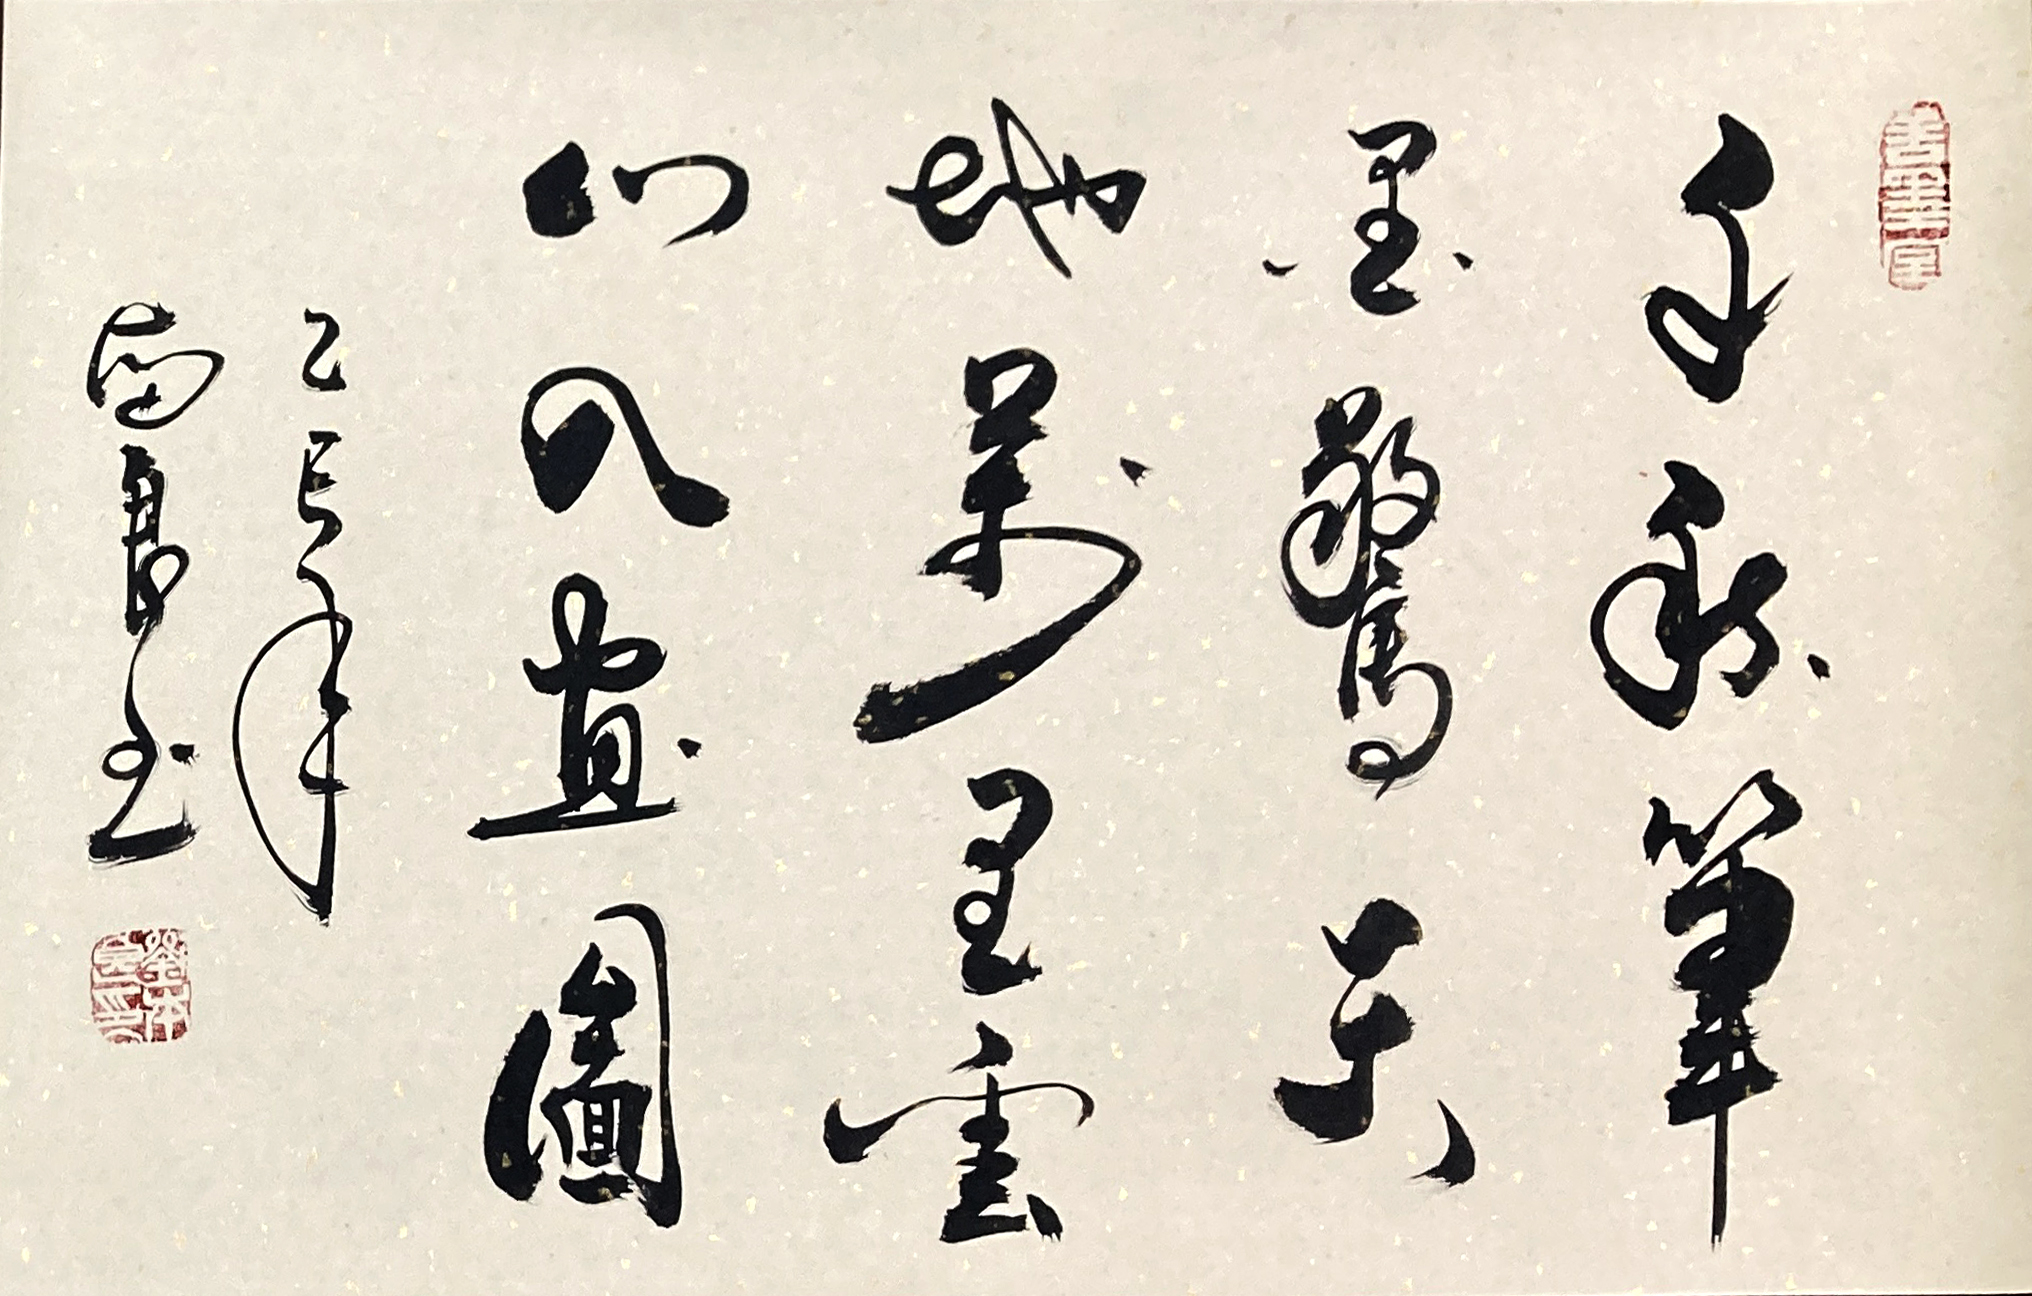 千秋筆
墨驚天
地萬里雲
山入畫圖
乙巳年